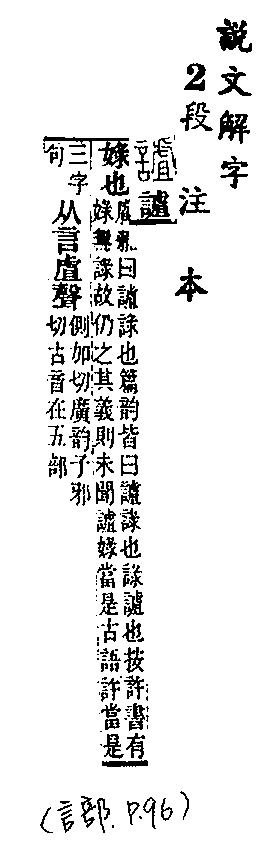 說文解字
2段注本
謯
娽也
廣雅曰謯䛩也篇韵皆曰謯䛩也䛩謯也按許書有
娽無䛩故仍之其義則未聞謯娽當是古語許當是
三字
句
从言虘聲
側加切廣韵子邪
切古音在五部
(言部. P.96)